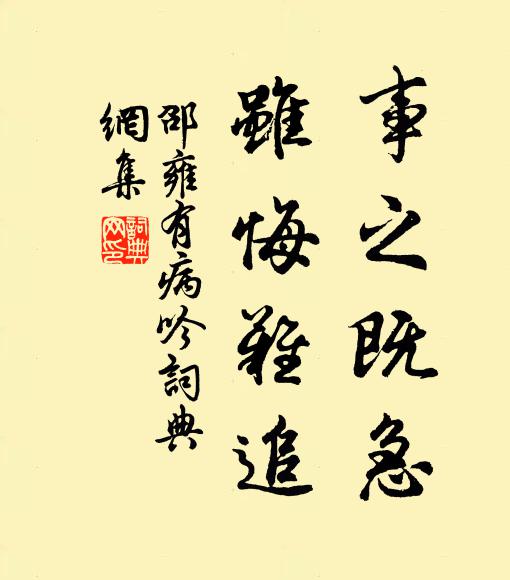 事之既急
雖悔難追
邵雍有病吟詞典
網集
詞典
网印